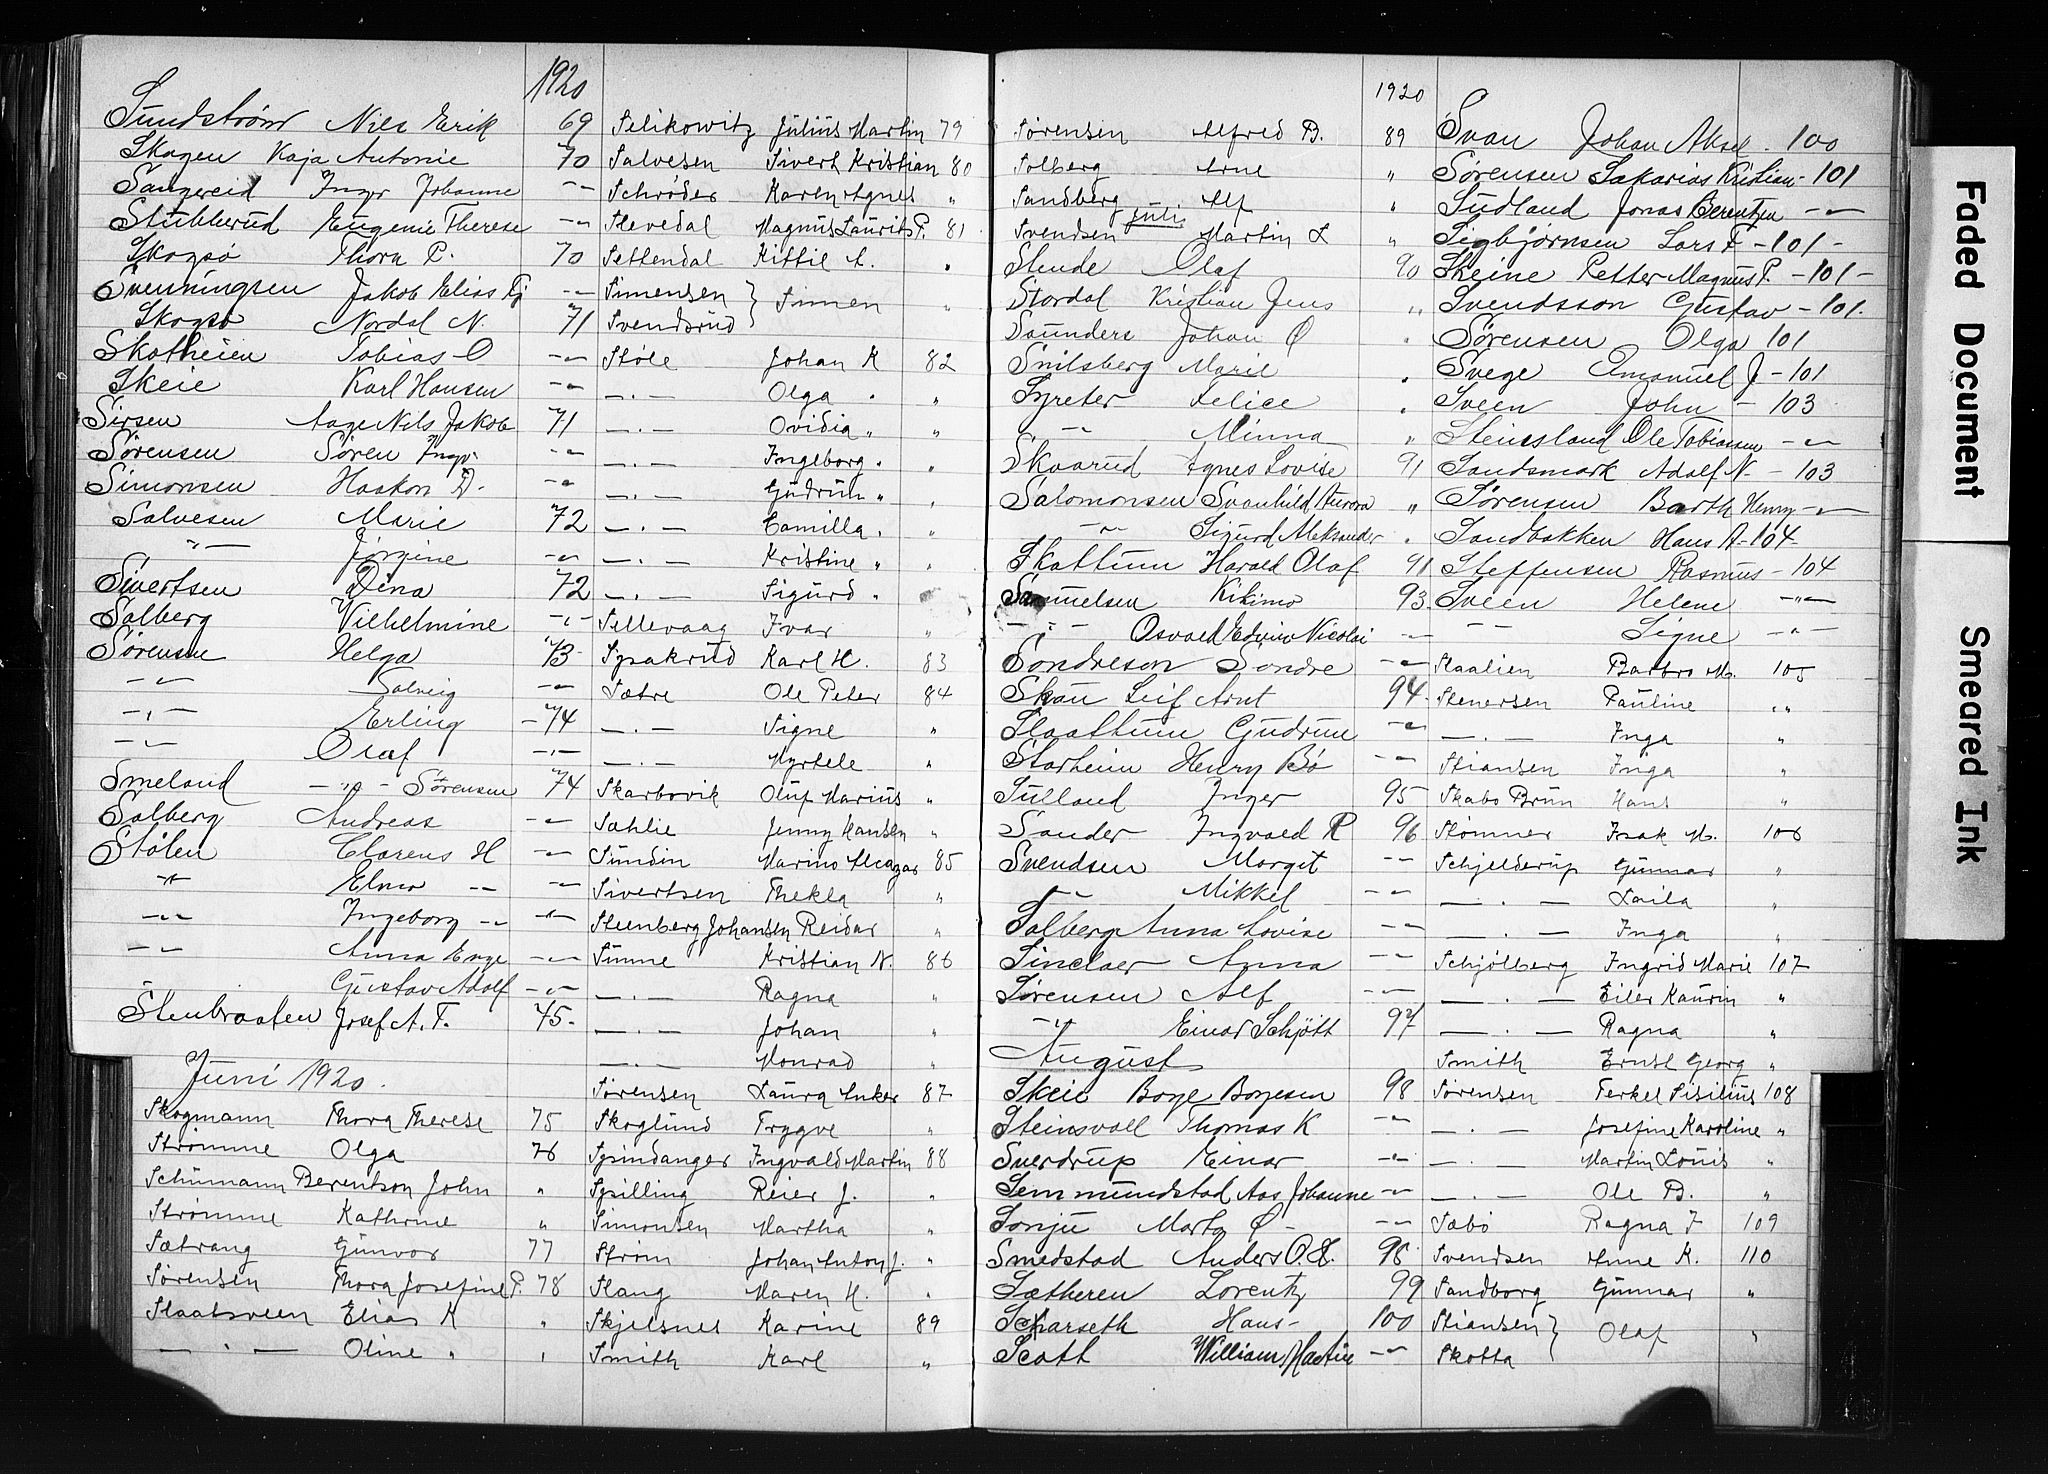 1920
Sundström Nils Erik 69
Skagen Kaja Antonie 70
Sangereid Inger Johanne -"-
Stubberud Eugenie Therese -"-
Skogsø Thora P. 70
Svenningsen Jakob Elias -"-
Skogsø Nordal N. 71
Skotheien Tobias O -"-
Skeie Karl Hansen -"-
Sirsen Aage Nils Jakob 71
Sørensen Søren Ingv. -"-
Simonsen Haakon D. -"-
Salvesen Marie 72
-"- Jørgine -"-
Sivertsen Dina 72
Solberg Vilhelmine -"-
Sørensen Helga 73
-"- Solveig -"-
-"- Erling -74
-"- Olaf -"-
Smeland -"- Sørensen 74
Solberg Andreas -"-
Stølen Clarens H -"-
-"- Elmer -"- -"-
-"- Ingeborg -"- -"-
-"- Anna Enge -"-
-"- Gustav Adolf -"-
Stenbraaten Josef A. T. 75-
Juni 1920.
Skogmann Thora Therese 75
Strømme Olga 76
Schümann Berentson John "
Strømme Kathrine "
Sætrang Gunvor 77
Sørensen Thora Josefine P. 78
Slaatsveen Elias K "
— " — Oline " "
Selikowitz Julius Martin 79
Salvesen Sivert Kristian 80
Schrøder Karen Agnes "
Slevedal Magnus Laurits P. 81
Settendal Kittil A. "
Simensen } Simen "
Svendsrud
Støle Johan K 82
— " — Olga " "
— " — Ovidia " "
— " — Ingeborg " "
— " — Gudrun " "
— " — Camilla " "
— " — Kristine " "
— " — Sigurd "
Sellevaag Ivar "
Sysakrud Karl H. 83
Sætre Ole Peter 84
— " — Signe "
— " — Myrtele "
Skarbøvik Oluf Marius "
Sahlie Jenny Hansen "
Sundin Marino Alcazar 85
Sivertsen Thekla "
Steenberg Johansen Reidar "
Simme Kristian N. 86
— " — Ragna "
— " — Johan "
— " — Monrad "
Sørensen Laura Anker 87
Skoglund Trygve "
Spindanger Ingvald Martin 88
Spilling Reier J. "
Simonsen Martha "
Strøm Johan Anton J. "
Stang Maren H. "
Skjelsnes Karine 89
Smith Karl "
1920
Sørensen Alfred B. 89
Solberg Arne "
Sandberg Alf "
Juli
Svendsen Martin L "
Stende Olaf 90
Stordal Kristian Jens "
Saunders Johan Ø "
Snilsberg Marie "
Syreter Felice "
-"- Minna "
Skaarud Agnes Lovise 91
Salomonsen Svanhild Aurora "
-"- Sigurd Aleksander "
Skattum Harald Olaf 91
Samuelsen Kikimo 93
-"- Osvald Edvin Nicolai -"-
Sondreson Sondre -"-
Skau Leif Arnt 94
Slaattum Gudrun -"-
Starheim Henry Bö -"-
Sulland Inger 95
Sander Ingvald R 96
Svendsen Margit -"-
-"- Mikkel -"-
Solberg Anna Lovise -"-
Sinclaer Anna -"-
Sørensen Alf -"-
-"- Einar Schjött 97
August
Skeie Boye Boyesen 98
Steinsvoll Thomas K -"-
Sverdrup Einar -"-
Semmundstad Aas Johanne -"-
Sonju Marta O - -"-
Smedstad Anders O. E. 98
Sætheren Lorentz 99
Scharseth Hans - 100
Scott William Martin -"-
Svan Johan Aksel. 100
Sørensen Sakarias Kristian - 101
Sudland Jonas Berentzen -"-
Sigbjørnsen Lars F - 101 -
Skeine Petter Magnus P. - 101 -
Svendsson Gustav - 101.
Sørensen Olga 101
Svege Emanuel J - 101
Sveen John - 103
Steinsland Ole Tobiassen -"-
Sandsmark Adolf N - 103
Sørensen Barth Henry -"-
Sandbakken Hans A - 104-
Steffensen Rasmus - 104
Sveen Helene -"-
-"- Signe -"-
Staalien Barbro M. 105
Stenersen Pauline "
— " — Inga "
Stiansen Inga "
Skabo Brün Hans "
Stømner Isak M. 106
Schjelderup Gunnar "
— " — Laila "
— " — Inga "
Schjölberg Ingrid Marie 107
— " — Eiler Kaurin "
— " — Ragna "
Smith Ernst Georg "
Sørensen Terkel Sisilius 108
— " — Josefine Karoline "
— " — Martin Louis "
— " — Ole B. "
Sæbö Ragna J 109
Svendsen Anne K. 110
Sandborg Gunnar "
Stiansen } Olaf "
Skotta
Faded Document
Smeared Ink